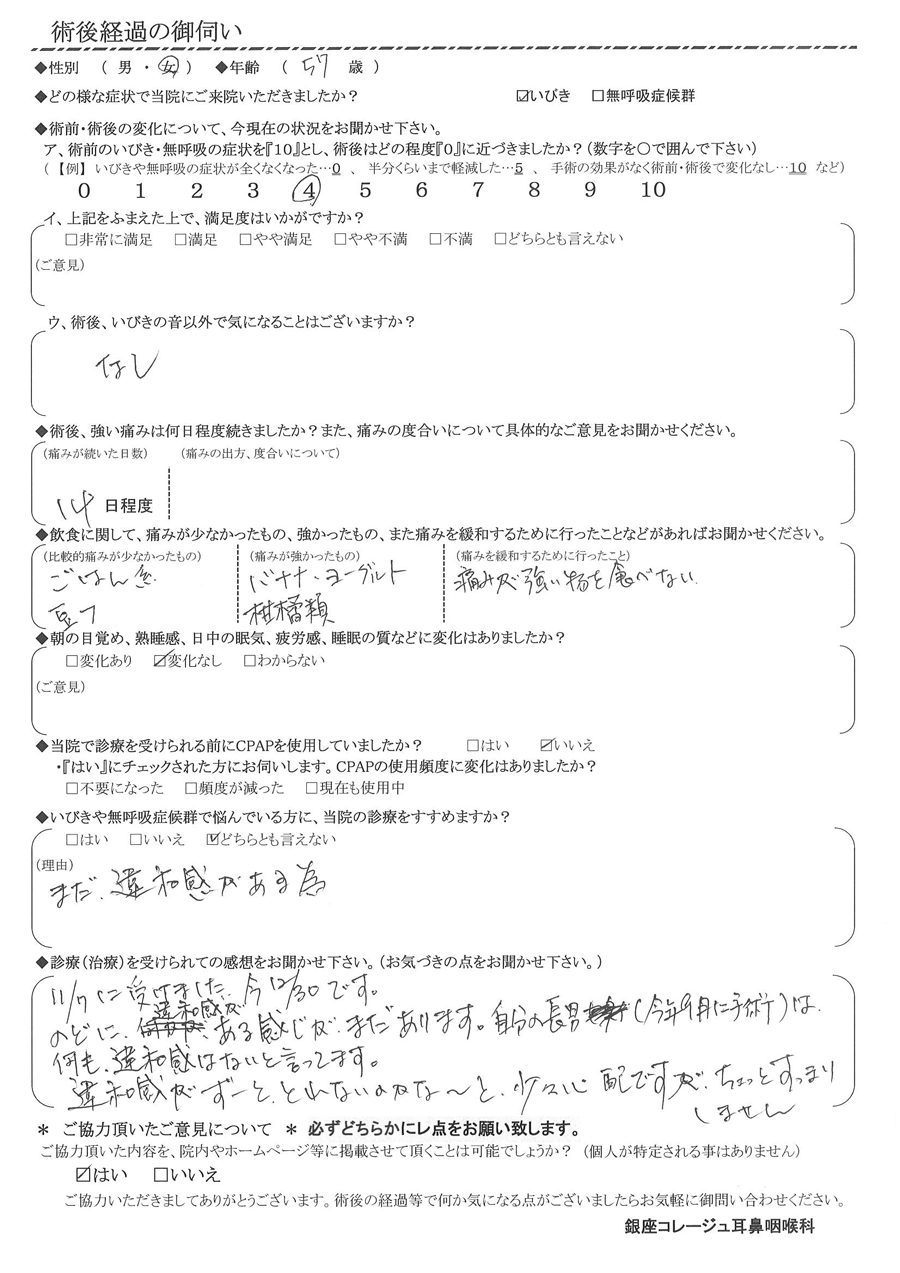 術後経過の御伺い
◆性別 ( 男 ・ 女 ) ◆年齢 ( 57 歳 )
◆どの様な症状で当院にご来院いただきましたか? ☑いびき □無呼吸症候群
◆術前・術後の変化について、今現在の状況をお聞かせ下さい。
ア、術前のいびき・無呼吸の症状を『10』とし、術後はどの程度『0』に近づきましたか?(数字を〇で囲んで下さい)
(【例】いびきや無呼吸の症状が全くなくなった…0 、 半分くらいまで軽減した…5 、 手術の効果がなく術前・術後で変化なし…10 など)
0 1 2 3 4 5 6 7 8 9 10
イ、上記をふまえた上で、満足度はいかがですか?
□非常に満足 □満足 □やや満足 □やや不満 □不満 □どちらとも言えない
(ご意見)
ウ、術後、いびきの音以外で気になることはございますか?
なし
◆術後、強い痛みは何日程度続きましたか?また、痛みの度合いについて具体的なご意見をお聞かせください。
(痛みが続いた日数) (痛みの出方、度合いについて)
14 日程度
◆飲食に関して、痛みが少なかったもの、強かったもの、また痛みを緩和するために行ったことなどがあればお聞かせください。
(比較的痛みが少なかったもの) (痛みが強かったもの) (痛みを緩和するために行ったこと)
ごはん バナナ・ヨーグルト 痛みが強い物を食べない
豆フ 柑橘類
◆朝の目覚め、熟睡感、日中の眠気、疲労感、睡眠の質などに変化はありましたか?
□変化あり ☑変化なし □わからない
(ご意見)
◆当院で診療を受けられる前にCPAPを使用していましたか? □はい ☑いいえ
・『はい』にチェックされた方にお伺いします。CPAPの使用頻度に変化はありましたか?
□不要になった □頻度が減った □現在も使用中
◆いびきや無呼吸症候群で悩んでいる方に、当院の診療をすすめますか?
□はい □いいえ ☑どちらとも言えない
(理由)
まだ、違和感がある為
◆診療(治療)を受けられての感想をお聞かせ下さい。(お気づきの点をお聞かせ下さい。)
11/7に受けました、今12/30です。
のどに、違和感が、ある感じが、まだあります。自分の長男(今年9月に手術)は、
何も、違和感はないと言ってます。
違和感がずーと、とれないのかな〜と、少々心配ですが、ちょっとすっきり
しません
* ご協力頂いたご意見について * 必ずどちらかにレ点をお願い致します。
ご協力頂いた内容を、院内やホームページ等に掲載させて頂くことは可能でしょうか? (個人が特定される事はありません)
☑はい □いいえ
ご協力いただきましてありがとうございます。術後の経過等で何か気になる点がございましたらお気軽に御問い合わせください。
銀座コレージュ耳鼻咽喉科